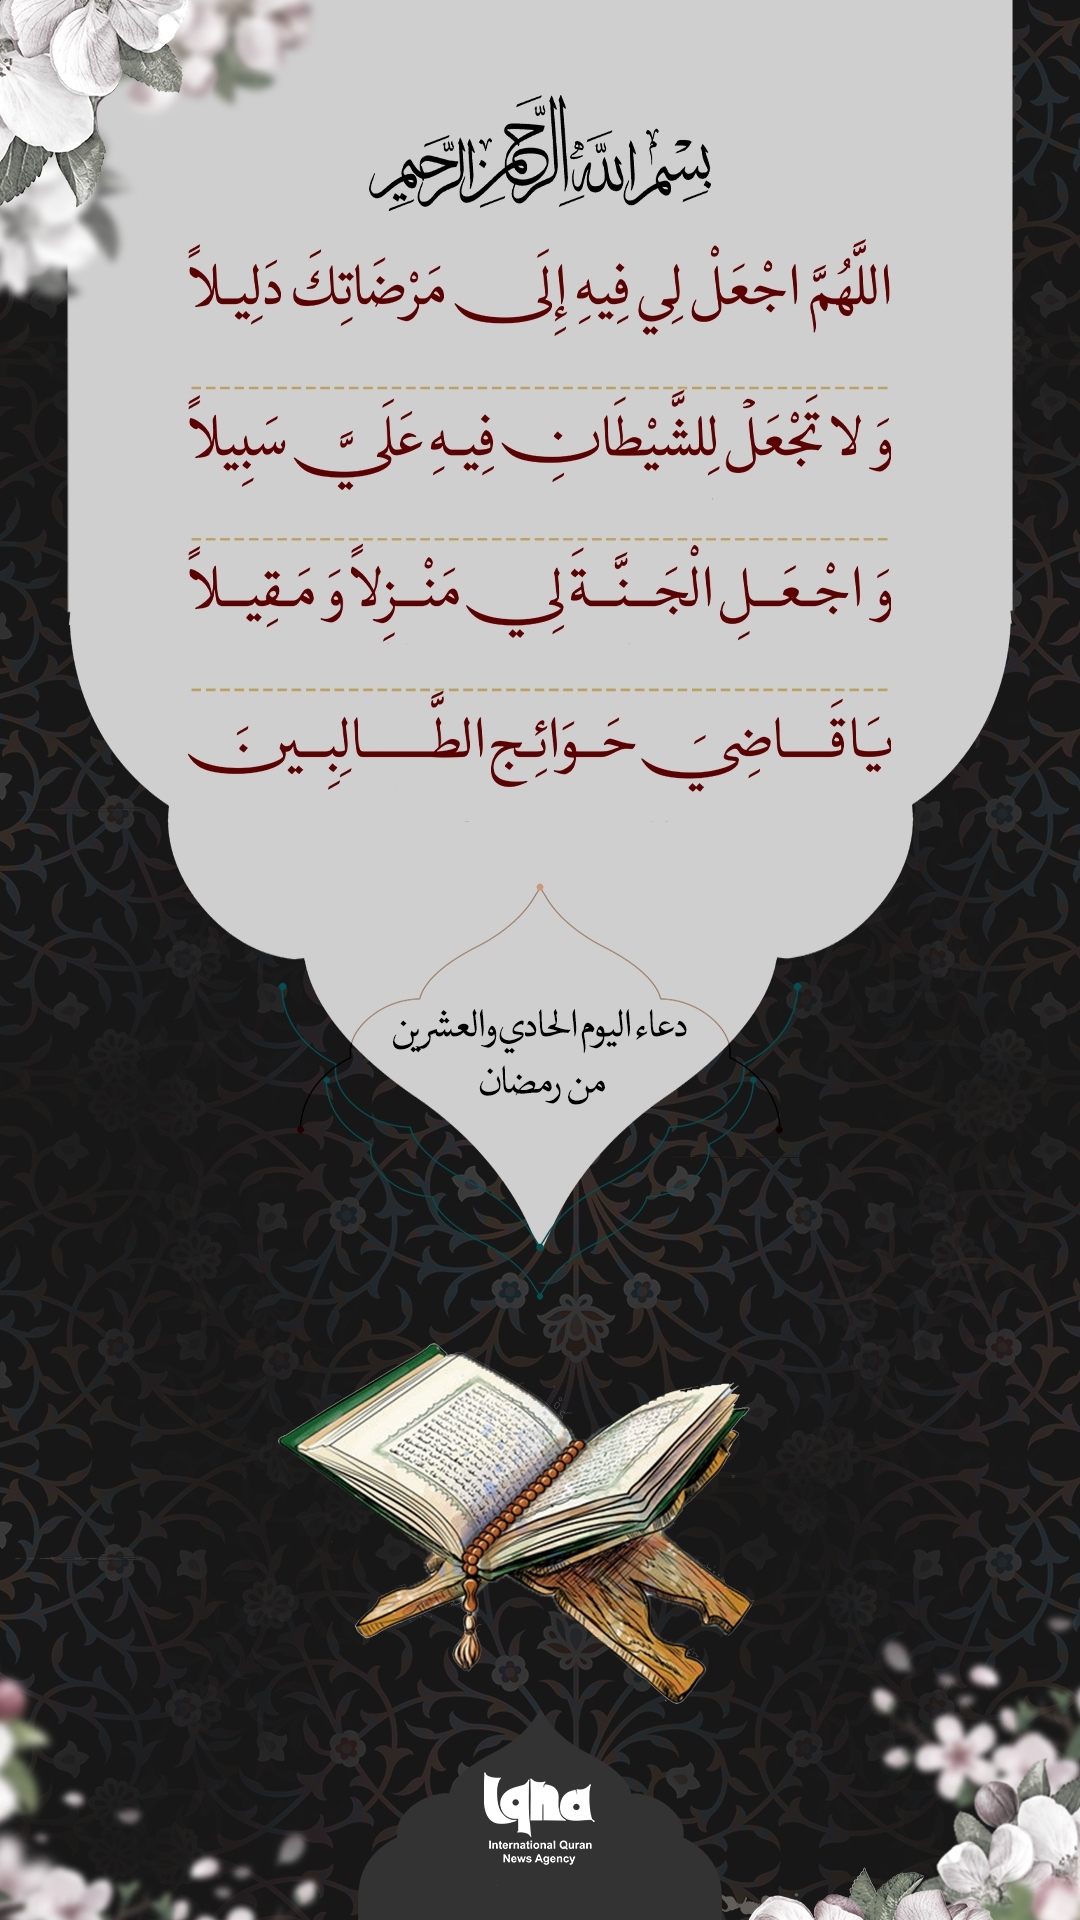 بِسْمِ اللَّهِ الرَّحْمنِ الرَّحِيمِ
اللَّهُمَّ اجْعَلْ لِي فِيهِ إِلَى مَرْضَاتِكَ دَلِيلاً
وَ لا تَجْعَلْ لِلشَّيْطَانِ فِيهِ عَلَيَّ سَبِيلاً
وَ اجْعَلِ الْجَنَّةَ لِي مَنْزِلاً وَ مَقِيلاً
يَا قَاضِيَ حَوَائِجِ الطَّالِبِينَ
دعاء اليوم الحادي والعشرين
من رمضان
Iqna
International Quran
News Agency